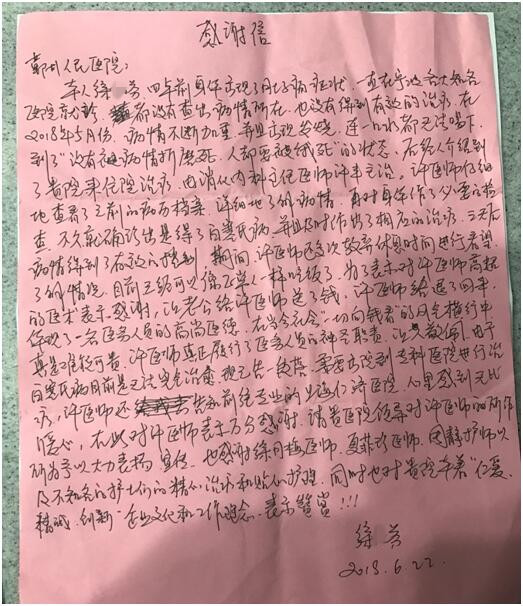 感谢信
鄞州人民医院:
本人徐 芬 四年前身体出现了 病症状 一直在宁波各大知名
医院就诊 都没有查出病情所在 也没有得到有效的治疗. 在
2018年5月份. 病情不断加重 并且出现发烧, 连一口水都无法喝下,
到了"没有被病情折磨死, 人都要被饿死"的状态. 后经人介绍到
了贵院来住院治疗, 由消化内科主任医师许丰 . 许医师仔细
地查看了之前的病历档案, 详细地了解病情, 再对身体作了必要的检
查, 不久就确诊出是得了白塞氏病 并且及时作出了相应的治疗. 三天后
病情得到了有效的控制 期间 许医师多次放弃休息时间进行看望
了解情况. 目前已经可以像正常人一样吃饭了. 为了表示对许医师高超
的医术表示感谢, 我老公给许医师送了钱, 许医师给退了回来
体现了一名医务人员的高尚医德. 在当今社会"一切向钱看的"风气横行中
真是难能可贵. 许医师真正履行了医务人员的神圣职责. 我 敬佩. 由于
白塞氏病目前是无法完全治愈. 现已告一段落, 需要出院到专科医院进行治
疗. 许医师还 告知前往专业的上海仁济医院, 心里感到无比
暖心, 在此对许医师表示万分感谢. 请贵医院领导对许医师的所作
所为予以大力表扬 宣传. 也感谢徐 医师, 夏 医师, 护师以
及不知名的护士们的精心治疗和贴心护理. 同时也对贵院本着"仁爱,
精诚, 创新"企业文化和工作理念, 表示赞赏!!!
徐 芬
2018.6.22.